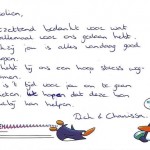 olien,
ettend bedankt voor wat
llemaal voor ons gedaan hebt.
kzij jou is alles vandaag goed
gaan.
hebt bij ons een hoop stress weg-
omen.
is 't tijd voor jou om te gaan
ieten. We hopen dat deze bon
bij kan helpen.
Dick & Charissa